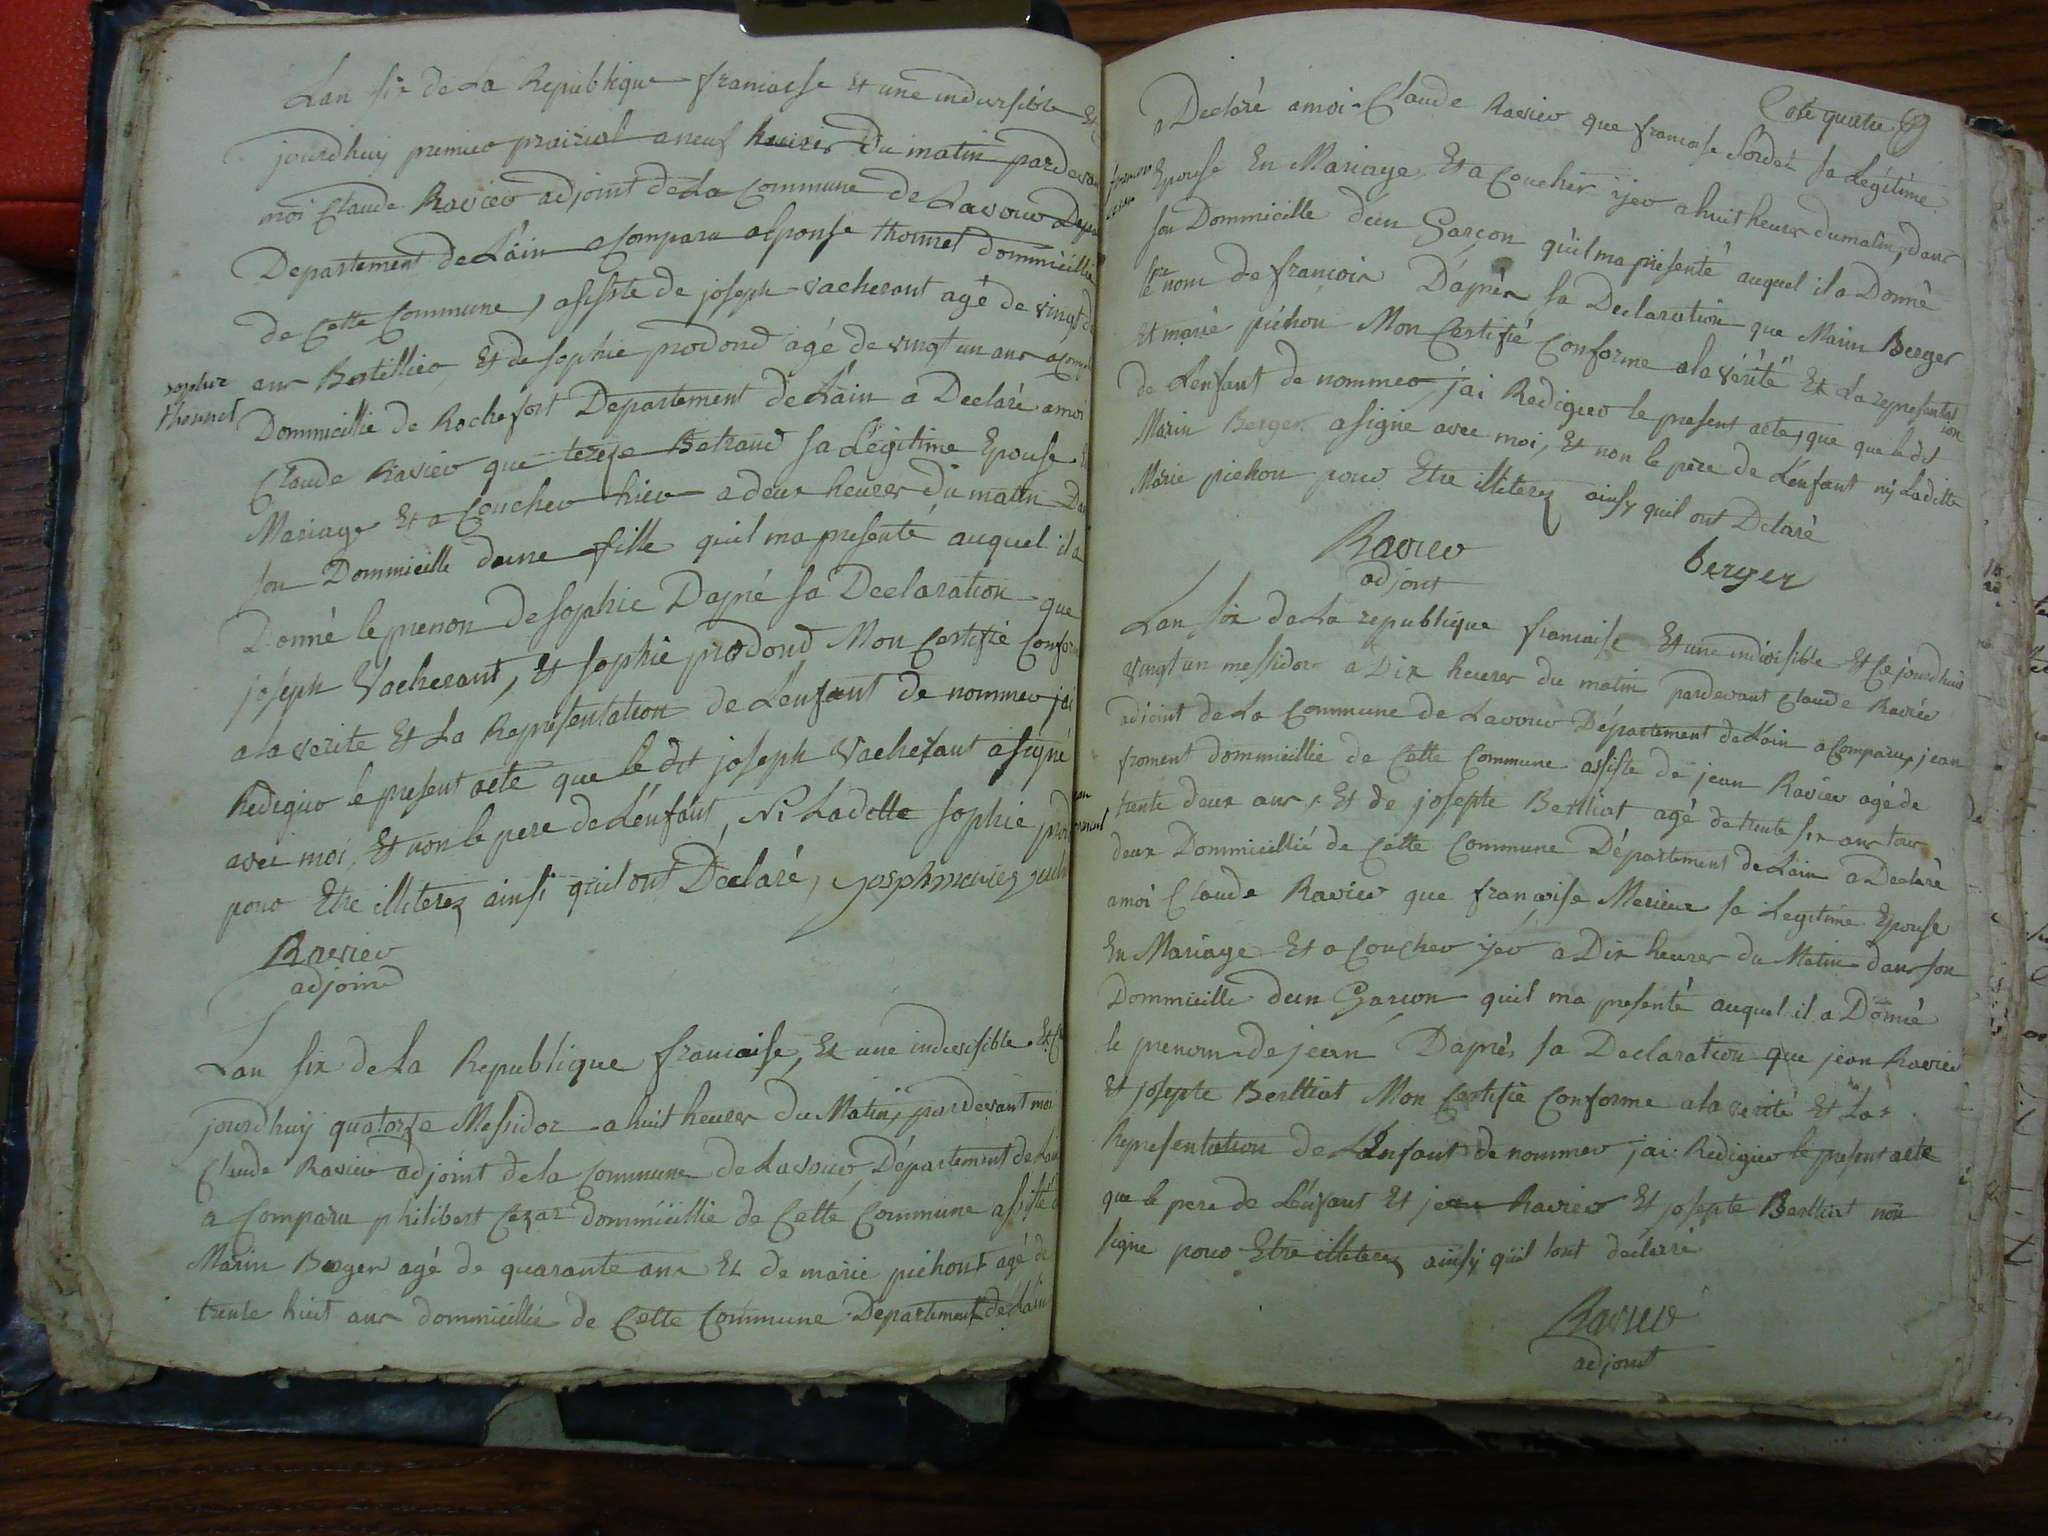 Lan six de La Republique francaise Et une indivisible Et
jourdhuy premier prairial a neuf heures du matin pardevan
moi Claude Ravier adjoint de La Commune de Lavour
Departement de Lain a Comparu alponse thonnet dommicillie
de Cette Commune, asisste de joseph vacherant agé de vingt
ans Bertillier, Et de sophie prodond agé de vingt un ans
sophie
thonnet
Dommicillié de Rochefort Departement de Lain a Declaré amoi
Claude Ravier que tereze Betrand sa Légitime Epouse
Mariage Et a Coucher hier a deux heures Du matin Da
son Dommicille dune fille quil ma presenté auquel il a
Donné le prenon de sophie Dapré sa Declaration que
joseph Vacherant, Et sophie prodond Mon Certifié Confor
a la verite Et La Représentation de Lenfant de nommer jai
Rediguer le present acte que le dit joseph Vacherant a signé
avec moi, Et non le pere de Lenfant, Ni Ladette sophie prod
pour Etre illiterez ainsi quil ont Déclaré,
Ravier
adjoind
Lan six de La Republique francaise, Et une indivisible Et Ce
jourdhuy quatorze Messidor a huit heures du Matin, pardevant moi
Claude Ravier adjoint de la Commune de Lavour, Département de Lain
a Comparu philibert Cezar dommicillié de Cette Commune assisté d
Marin Berger agé de quarante ans Et de marie pichont agé de
trente huit ans dommicillie de Cette Commune Departement de Lain
Cote quatre
a Declaré amoi Claude Ravier que francoise Sordet sa Légitime
Epouse En Mariage Et a Coucher yer a huit heures du matin, dans
son Dommicille d'un Garcon quil ma presenté auquel il a Donné
le pre nom de francois D'après sa Declaration que Marin Berger
Et marie pichon Mon Certifié Conforme a la vérité Et La representat
ion
de Lenfant de nommer, jai Rediguer le present acte, que que le dit
Marin Berger a signe avec moi, Et non le père de Lenfant ny Ladette
Marie pichon pour Etre illiterez ainsy quil ont Delaré
Ravier berger
adjont
Lan six de La republique francaise Et une indivisible Et Ce jourdhuis
vingt un messidor a Dix heures du matin pardevant Claude Ravier
adjoint de La Commune de Lavour Département de Lain a Comparu, jean
froment dommicillié de Cette Commune assiste de jean Ravier agé de
trente deux ans, Et de josepte Berlliat agé de trente six ans tous
deux Dommicillié de Cette Commune Département de Lain a Declaré
amoi Claude Ravier que françoise Merieux sa Legitime Epouse
En Mariage Et a Coucher yer a Dix heures du Matin dans son
Dommicille dun Garcon quil ma presenté auquel il a Donné
le prenom de jean Daprés sa Declaration que jean Ravier
Et josepte Berlliat Mon Certifie Conforme a la verité Et La
Representation de Lenfant de nommer, jai Rediguer le present acte
que le pere de Lenfant Et jean Ravier Et josepte Berlliat non
signe pour Etre illiterez ainsy quil lont declaré
Ravier
adjoint